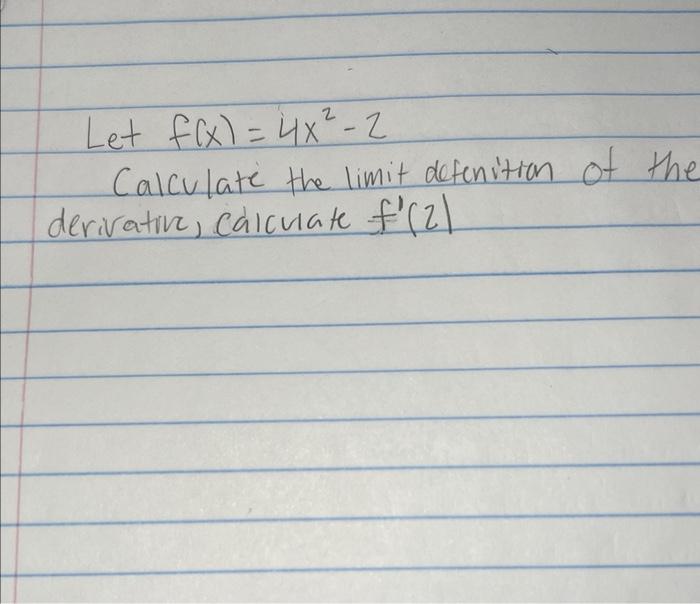 Let f(x) = 4x² - 2
Calculate the limit defenition of the
derivative, calculate f'(2)